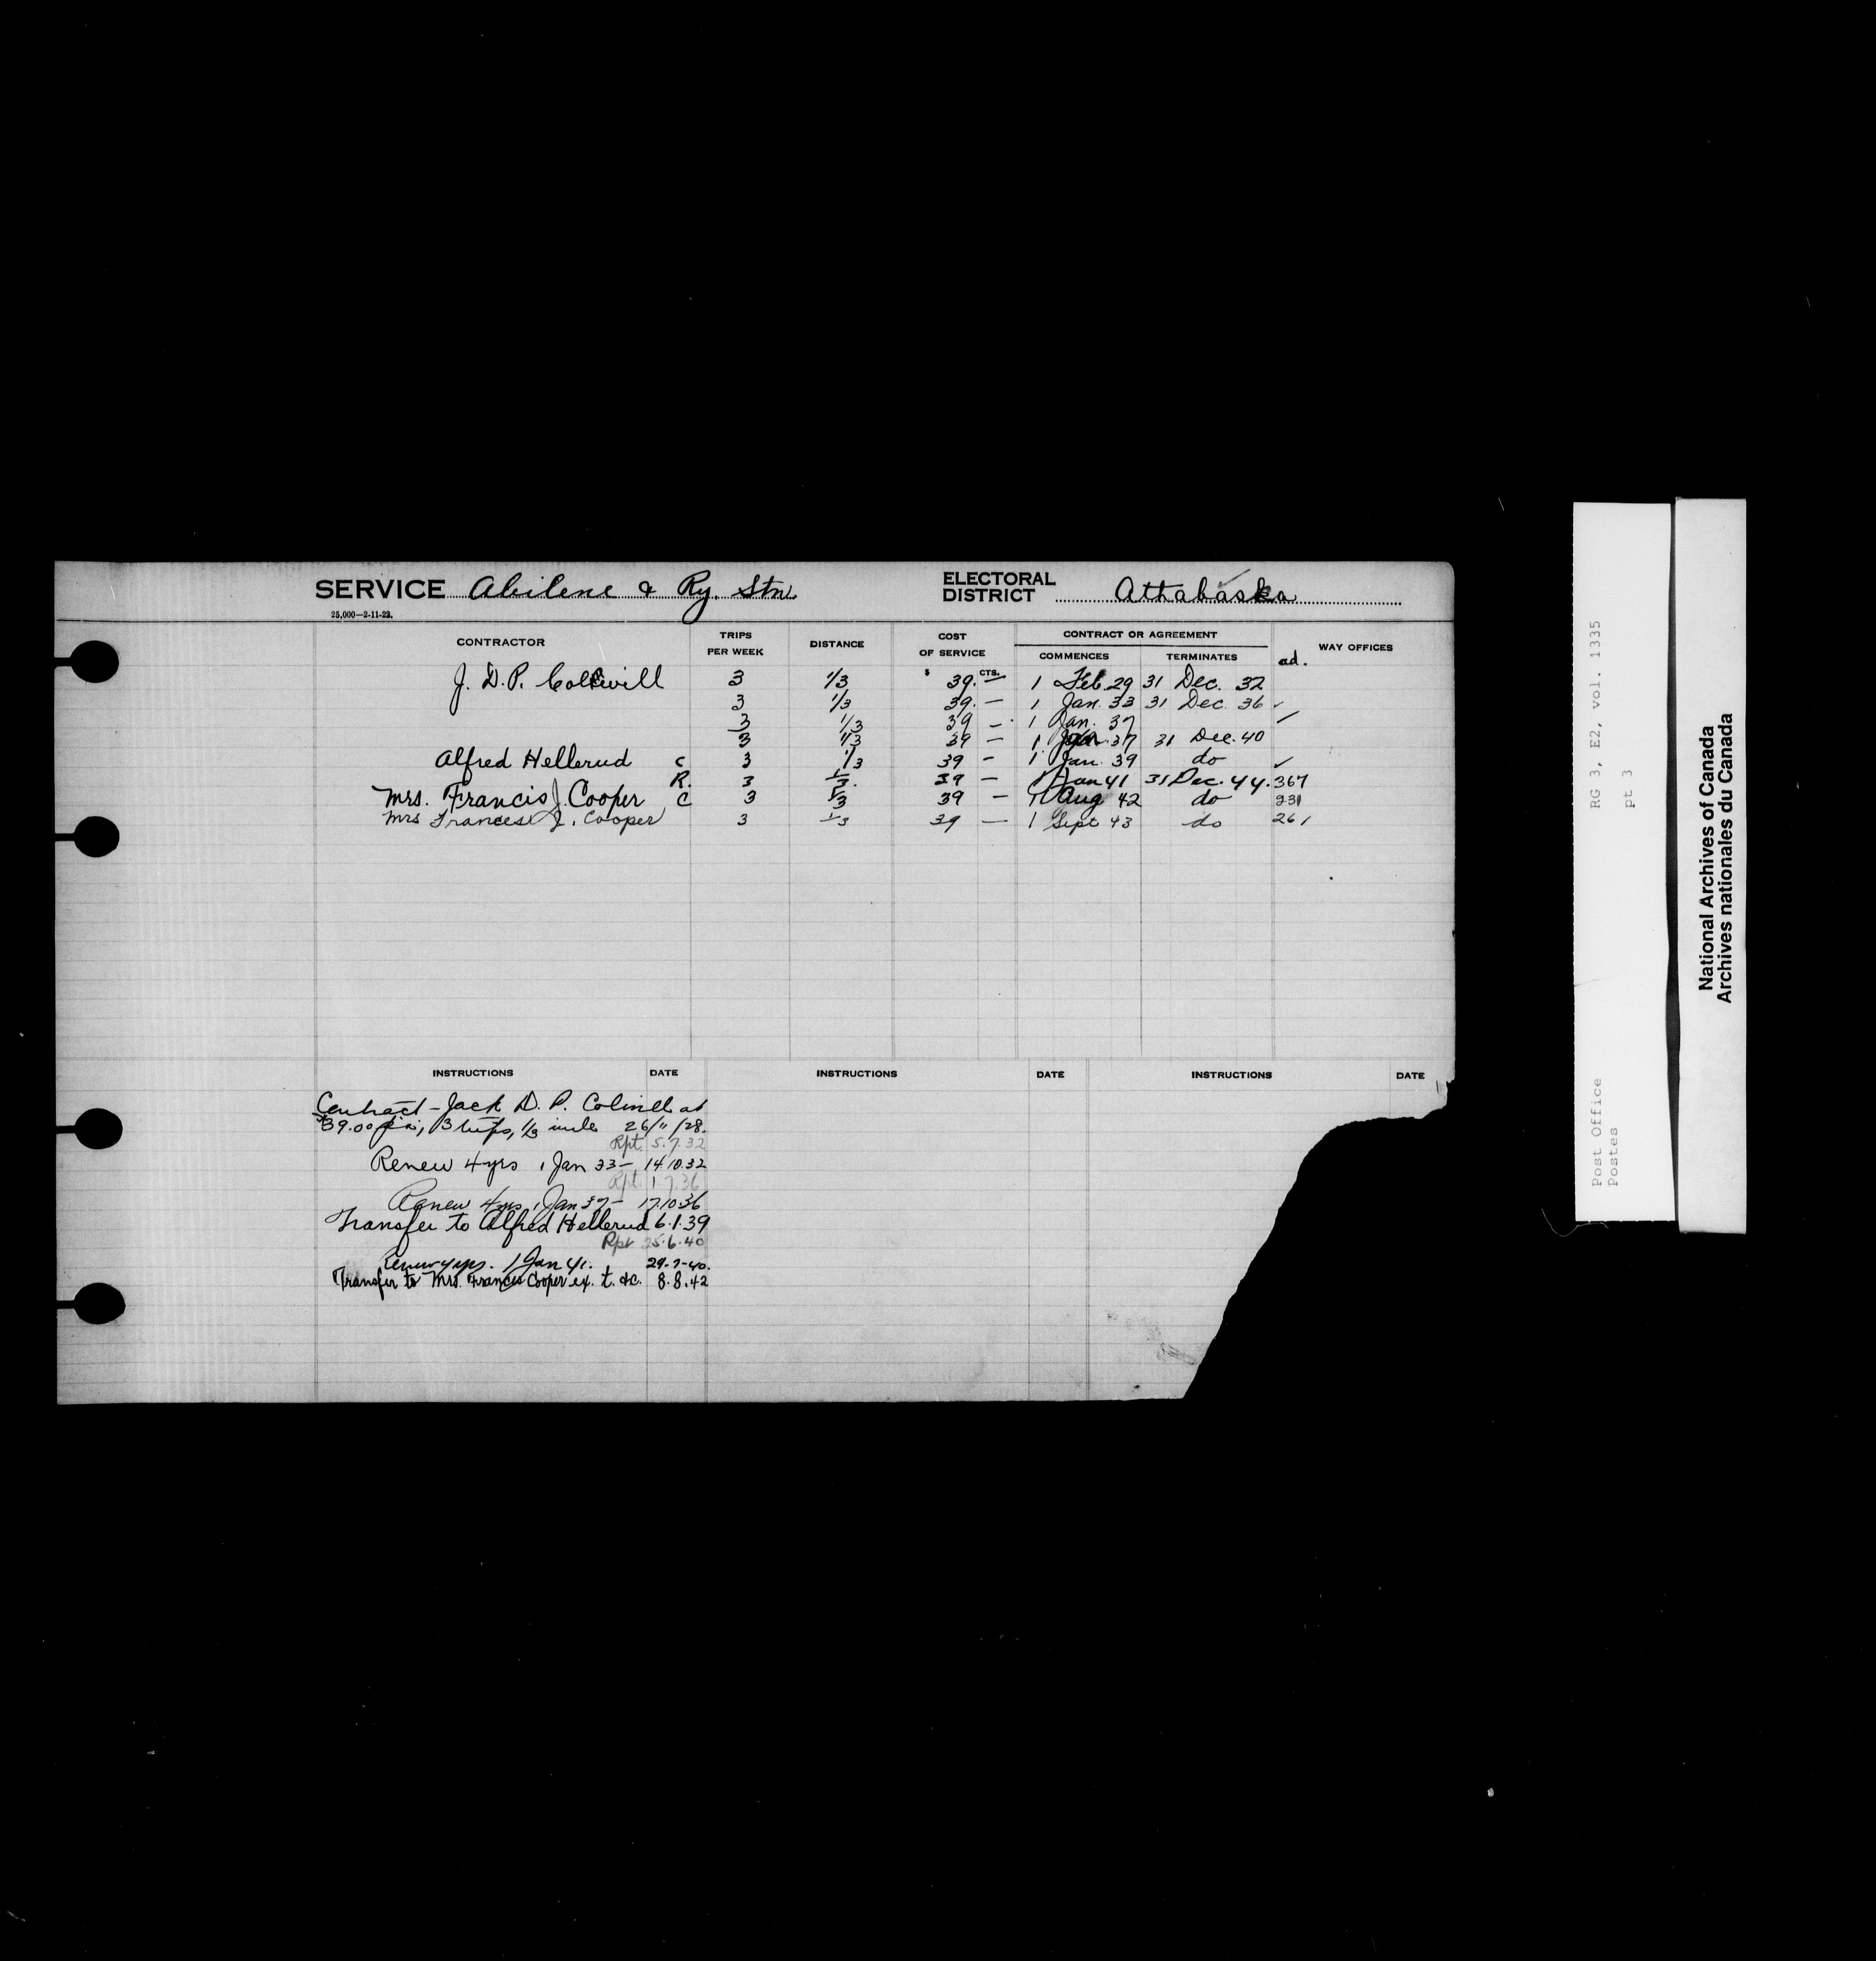 SERVICE Abilene & Ry. Stn. ELECTORAL DISTRICT Athabaska
25,000—2-11-22.
CONTRACTOR TRIPS PER WEEK DISTANCE COST OF SERVICE CONTRACT OR AGREEMENT WAY OFFICES
$ CTS. COMMENCES TERMINATES ad.
J. D. P. 3 1/3 39. — 1 Feb. 29 31 Dec. 32
3 1/3 39. — 1 Jan. 33 31 Dec. 36 ✓
3 1/3 39 — 1 Jan. 37
3 1/3 39 — 1 Jan. 37 31 Dec. 40
Alfred Hellerud C 3 1/3 39 — 1 Jan. 39 do ✓
R. 3 1/3. 39 — 1 Jan 41 31 Dec. 44. 367
Mrs. Francis J. Cooper C 3 1/3 39 — 1 Aug 42 do 231
Mrs Frances J. Cooper 3 1/3 39 — 1 Sept 43 do 261
INSTRUCTIONS DATE INSTRUCTIONS DATE INSTRUCTIONS DATE
Contract - Jack D. P. at
$39.00 p.a., 3 trips, 1/3 mile 26/11/28.
Rpt. 5.7.32
Renew 4 yrs 1 Jan 33 — 14.10.32
Rpt. 1 7.36
Renew 4 yrs 1 Jan 37 — 17.10.36
Transfer to Alfred Hellerud 6.1.39
Rpt 25.6.40
Renew 4 yrs. 1 Jan 41. 29-7-40.
Transfer to Mrs. Francis Cooper ex. t. &c. 8.8.42
RG 3, E2, vol. 1335
pt 3
Post Office
Postes
National Archives of Canada
Archives nationales du Canada